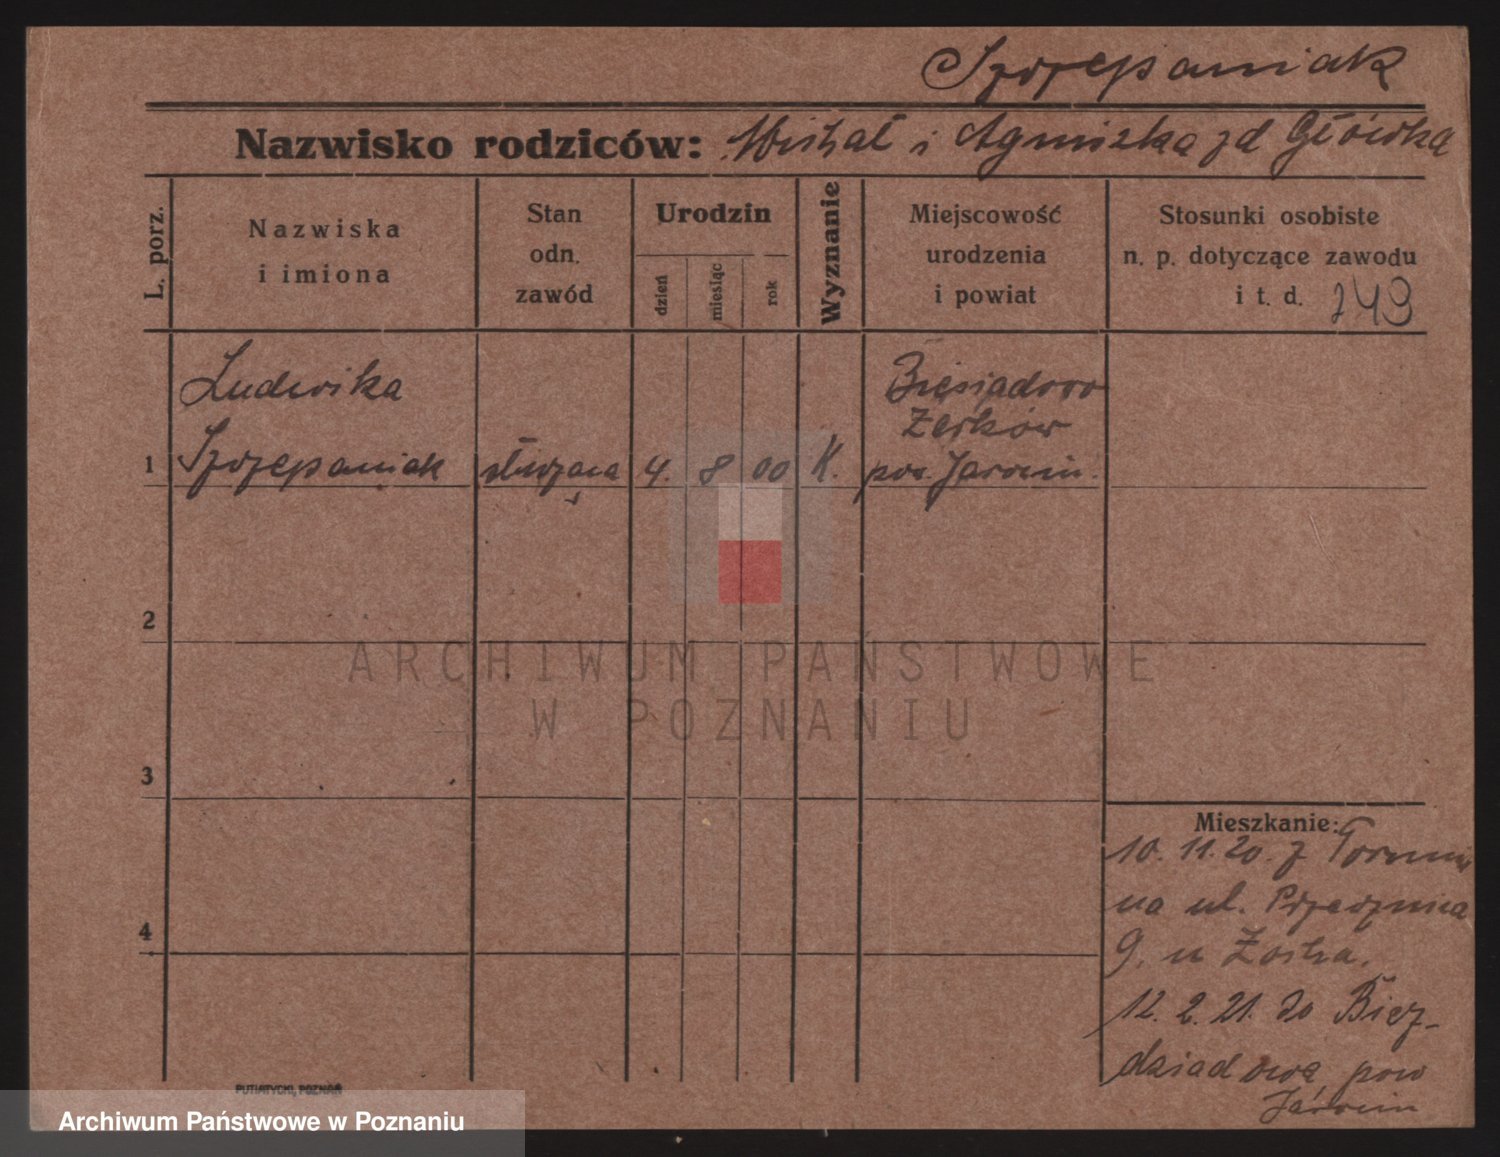 Szczepaniak
Nazwisko rodziców: Michał i Agnieszka zd Główka
L. porz.
Nazwiska
i imiona
Stan
odn.
zawód
Urodzin
dzień
miesiąc
rok
Wyznanie
Miejscowość
urodzenia
i powiat
Stosunki osobiste
n. p. dotyczące zawodu
i t. d. 249
Ludwika
Szczepaniak
służąca
4. 8 00
K.
Żerków
pow. Jarocin.
1
2
3
4
Mieszkanie:
10. 11. 20. z
na ul. Przecznica
9. u
12. 2. 21. do
pow
Jarocin
PUTIATYCKI, POZNAŃ
ARCHIWUM PAŃSTWOWE
W POZNANIU
Archiwum Państwowe w Poznaniu